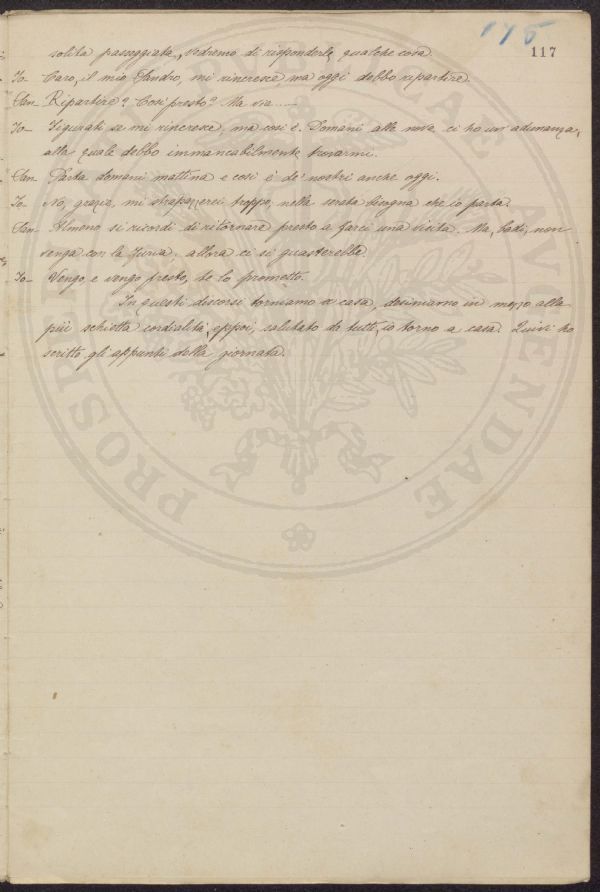 175
117
solita passeggiata, vedremo di risponderle qualche cosa.
Io_ Caro, il mio Sandro, mi rincresce, ma oggi debbo ripartire.
San_ Ripartire? Così presto? Ma via ......
Io_ Figurati se mi rincresce, ma così è. Domani alle nove ci ho un'adunanza,
alla quale debbo immancabilmente trovarmi.
San_ Parta domani mattina e così è de' nostri anche oggi.
Io_ No, grazie, mi strapazzerei troppo, nella serata bisogna che io parta.
San_ Almeno si ricordi di ritornare presto a farci una visita. Ma, badi, non
venga con la furia, allora ci si guasterebbe.
Io_ Vengo, e vengo presto, te lo prometto.
In questi discorsi torniamo a casa, desiniamo in mezzo alla
più schietta cordialità, eppoi, salutato da tutti, io torno a casa. Quivi ho
scritto gli appunti della giornata.
PROSPICIENDAE AVGENDAE